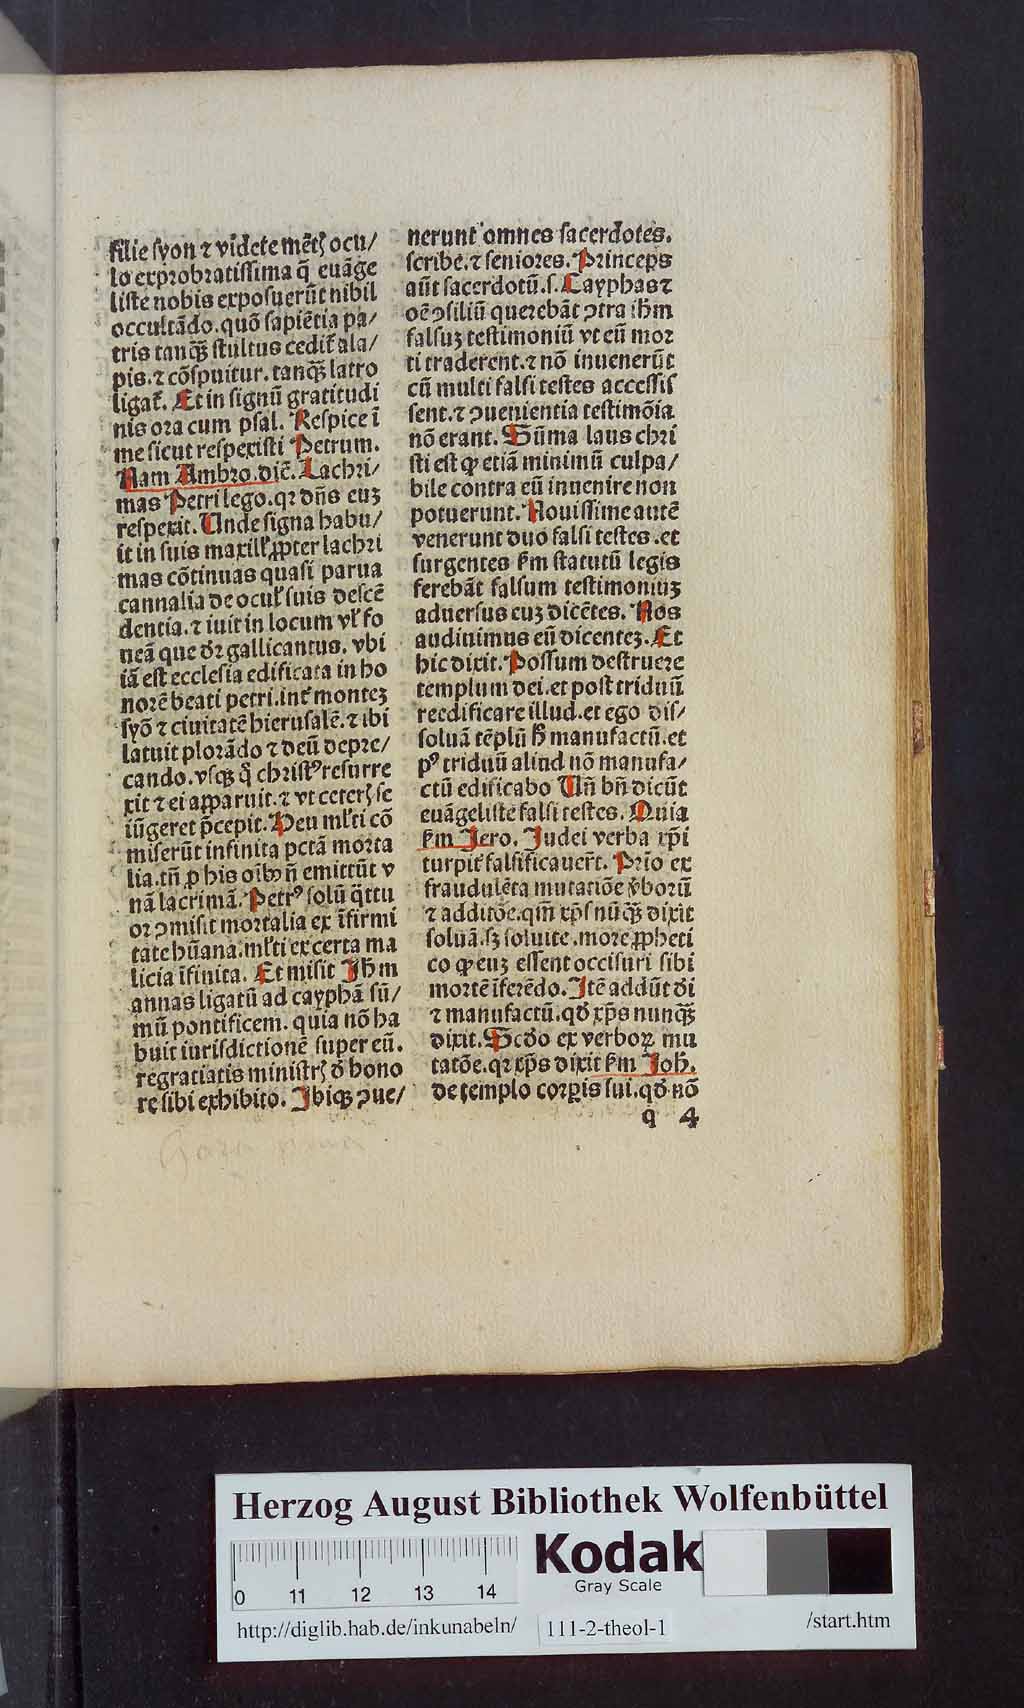 filie syon ⁊ videte mētꝭ ocu/
lo exprobratissima q̄ euāge
liste nobis exposuerūt nihil
occultādo. quō sapiētia pa/
tris tanqꝫ stultus cedit᷑ ala/
pis. ⁊ cōspuitur. tanqꝫ latro
ligat᷑. Et in signū gratitudi
nis ora cum psal. Respice ī
me sicut respexisti Petrum.
Nam Ambro. dic̄. Lachri/
mas Petri lego. qꝛ dn̄s euꝫ
respexit. Unde signa habu/
it in suis maxill᷑ ꝓpter lachri
mas cōtinuas quasi parua
cannalia de ocul᷑ suis descē
dentia. ⁊ iuit in locum vl᷑ fo
neā que dꝛ gallicantus. vbi
iā est ecclesia edificata in ho
norē beati petri. int᷑ monteꝫ
syō ⁊ ciuitatē hierusalē. ⁊ ibi
latuit plorādo ⁊ deū depre/
cando. vsqꝫ q̊ christꝰ resurre
xit ⁊ ei apparuit. ⁊ vt ceterꝭ se
iūgeret p̄cepit. Heu ml᷑ti cō
miserūt infinita pctā morta
lia. tn̄ ꝓ his oībꝰ n̄ emittūt v
nā lacrimā. Petrꝰ solū q̄ttu
or ꝯmisit mortalia ex īfirmi
tate hūana. ml᷑ti ex certa ma
licia īfinita. Et misit Jhm
annas ligatū ad cayphā sū/
mū pontificem. quia nō ha
buit iurisdictionē super eū.
regratiatis ministrꝭ ð bono
re sibi exhibito. Jbiqꝫ ꝯue/
nerunt omnes sacerdotes.
scribe. ⁊ seniores. Princeps
aūt sacerdotū. s. Cayphas ⁊
oē ꝯsiliū querebāt ꝯtra ihm
falsuꝫ testimoniū vt eū mor
ti traderent. ⁊ nō inuenerūt
cū multi falsi testes accessis
sent. ⁊ ꝯuenientia testimōia
nō erant. Sūma laus chri
sti est ꝙ etiā minimū culpa/
bile contra eū inuenire non
potuerunt. Nouissime autē
venerunt duo falsi testes. et
surgentes ẜm statutū legis
ferebāt falsum testimoniuꝫ
aduersus euꝫ dicētes. Nos
audiuimus eū dicenteꝫ. Et
hic dixit. Possum destruere
templum dei. et post triduū
reedificare illud. et ego dis/
soluā tēplū hͦ manufactū. et
pꝰ triduū aliud nō manufa/
ctū edificabo Un̄ bn̄ dicūt
euāgeliste falsi testes. Quia
ẜm Jero. Judei verba xp̄i
turpit᷑ falsificauer̄t. Prīo ex
fraudulēta mutatiōe v̓borū
⁊ additōe. qm̄ xp̄s nūqꝫ dixit
soluā. sꝫ soluite. more ꝓpheti
co ꝙ euꝫ essent occisuri sibi
mortē īferēdo. Jtē addūt di
⁊ manufactū. qð xp̄s nunqꝫ
dixit. Scðo ex verboꝝ mu
tatōe. qꝛ xp̄s dixit ẜm Joh.
de templo corꝑis sui. qð nō
q 4
Herzog August Bibliothek Wolfenbüttel
0 11 12 13 14
Kodak
Gray Scale
http://diglib.hab.de/inkunabeln/ 111-2-theol-1 /start.htm